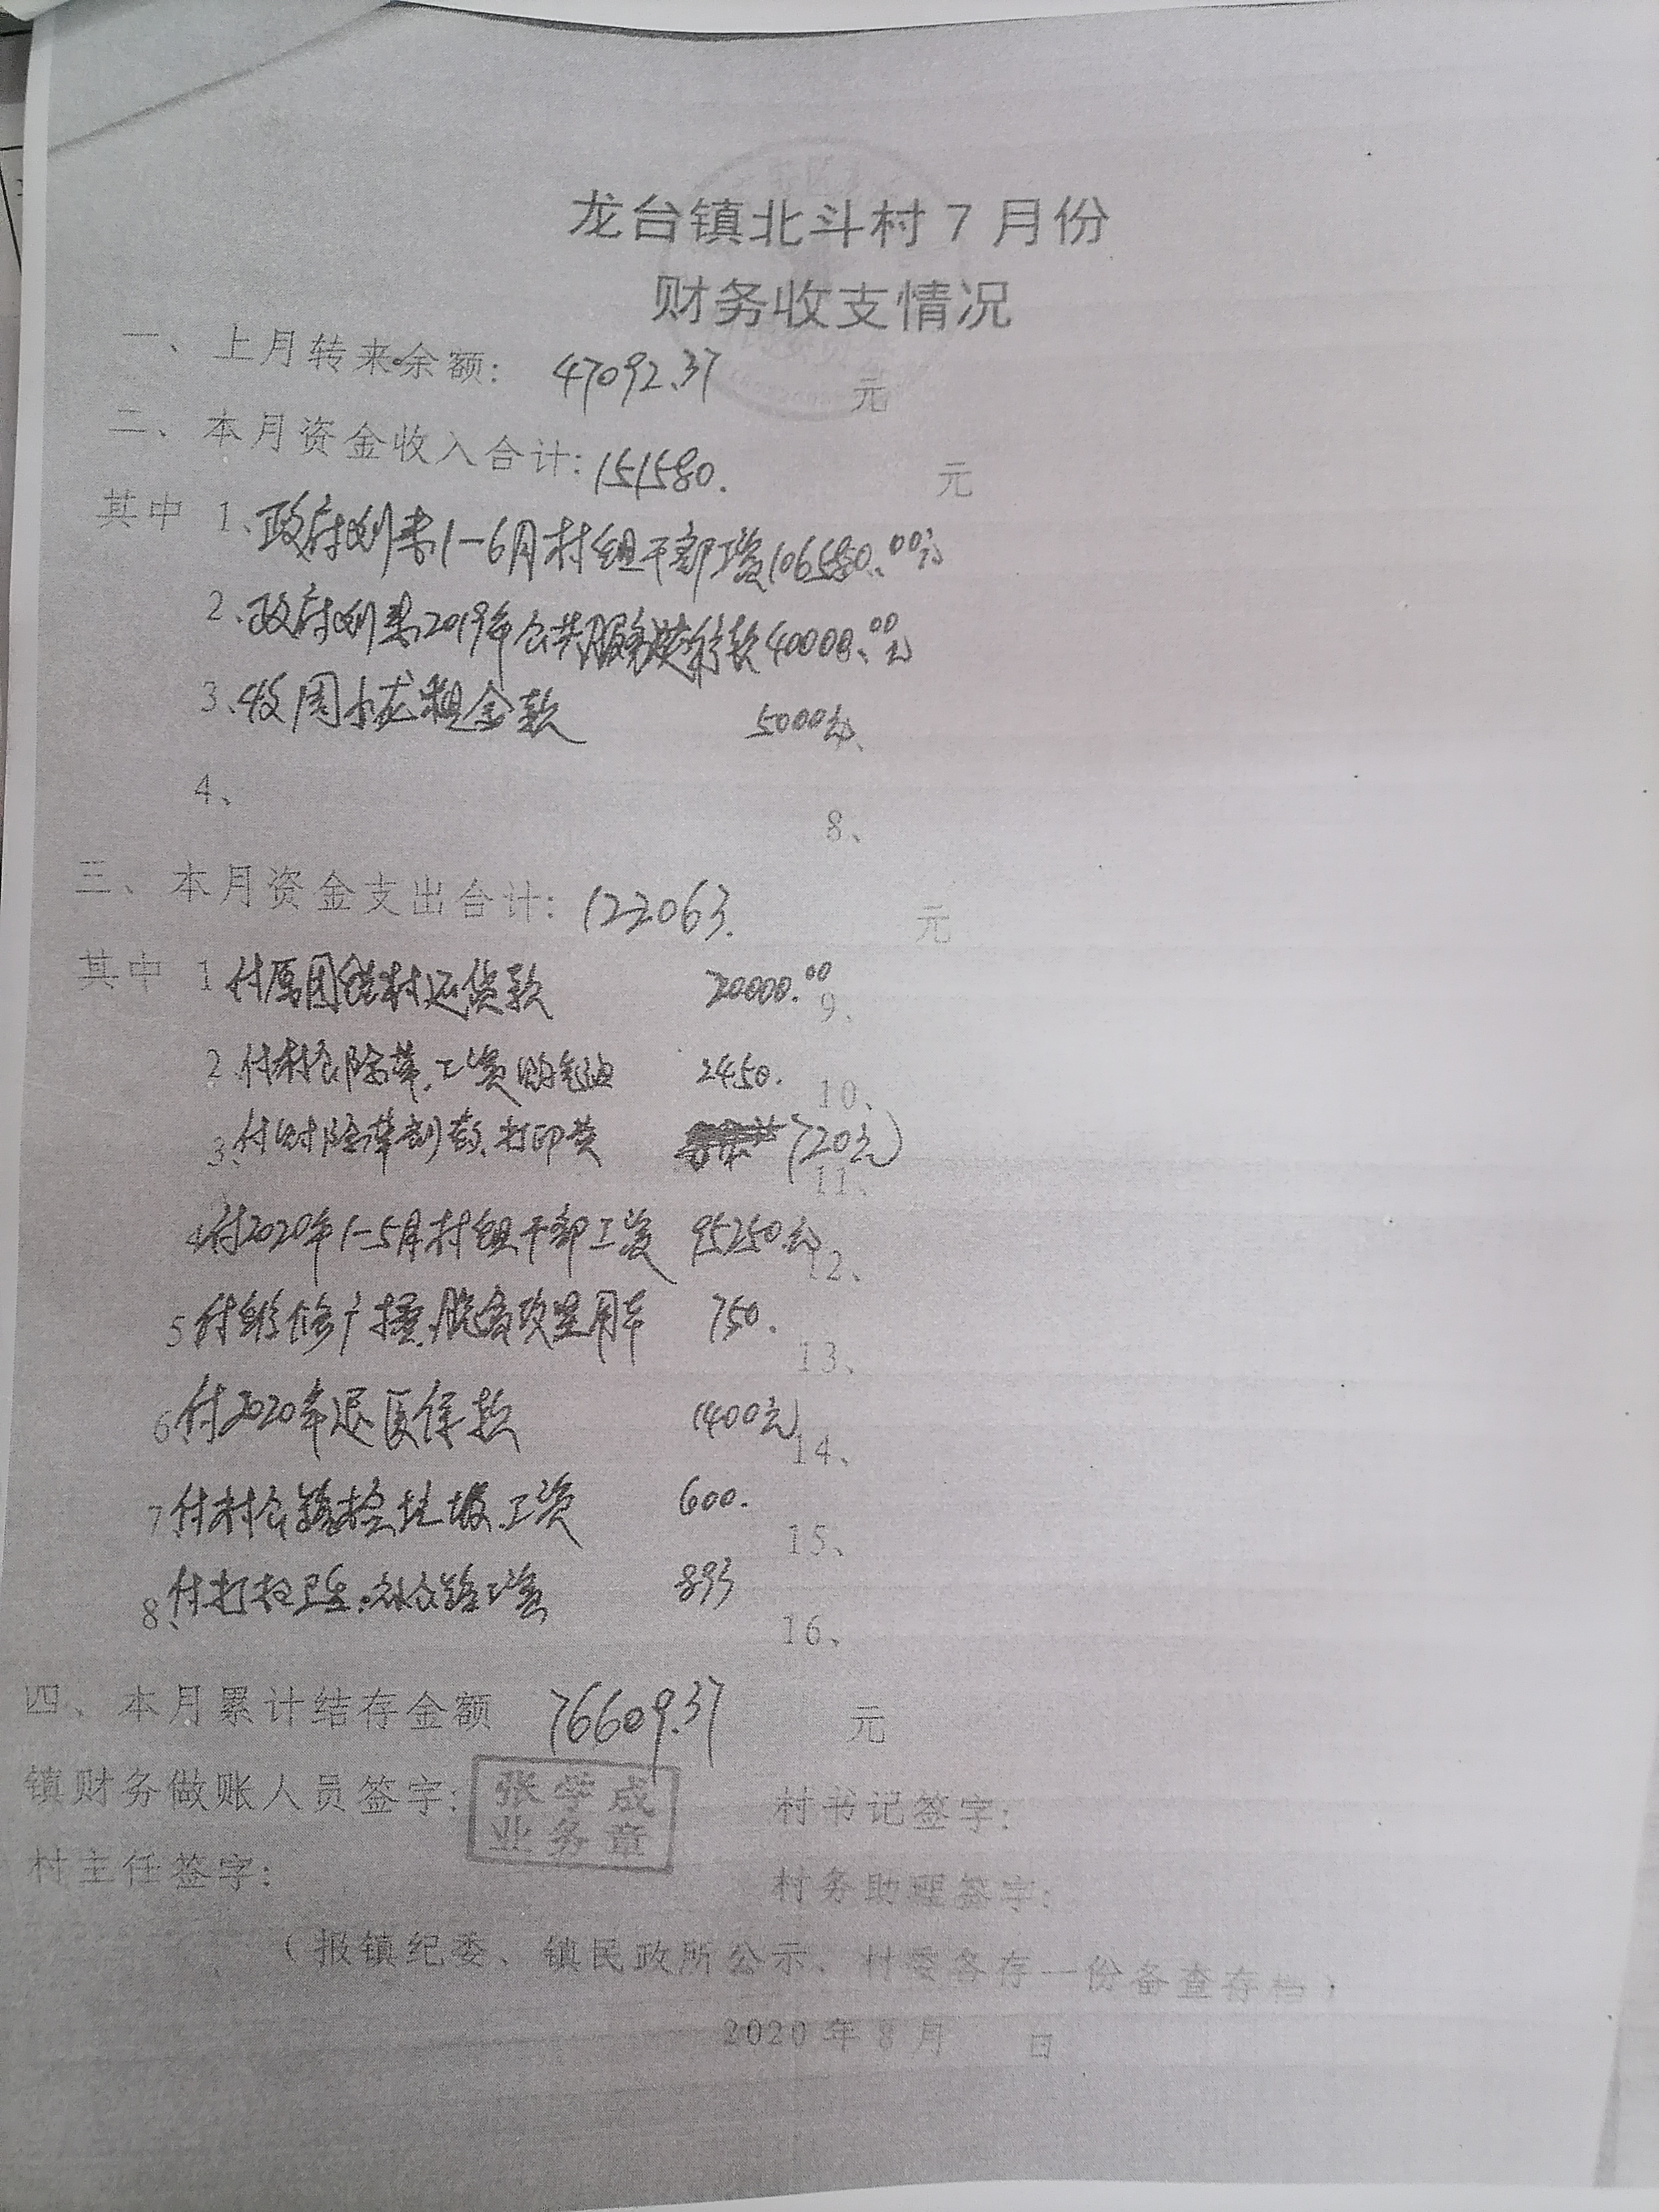 龙台镇北斗村7月份
财务收支情况
一、上月转来余额: 47092.37 元
二、本月资金收入合计: 151580. 元
其中 1、政府划来1-6月村组干部工资106580.00元
2、政府划来2019年公共服务 款40000.00元
3、收周小龙租金款 5000元
4、
8、
三、本月资金支出合计: 122063. 元
其中 1 付原团 村还贷款 20000.00
9、
2 付村 除草工资 2450.
10、
3、付 除草剂款、打印费 (720元)
11、
4 付2020年1-5月村组干部工资 95250元
12、
5 付维修广播、脱贫攻坚用车 750.
13、
6 付2020年退医保款 1400元
14、
7 付村公路捡垃圾工资 600.
15、
8、付打扫卫生 工资 893
16、
四、本月累计结存金额 76609.37 元
镇财务做账人员签字: 张学成
业务章
村书记签字:
村主任签字:
村务助理签字:
(报镇纪委、镇民政所公示、村委各存一份备查存档)
2020年8月 日